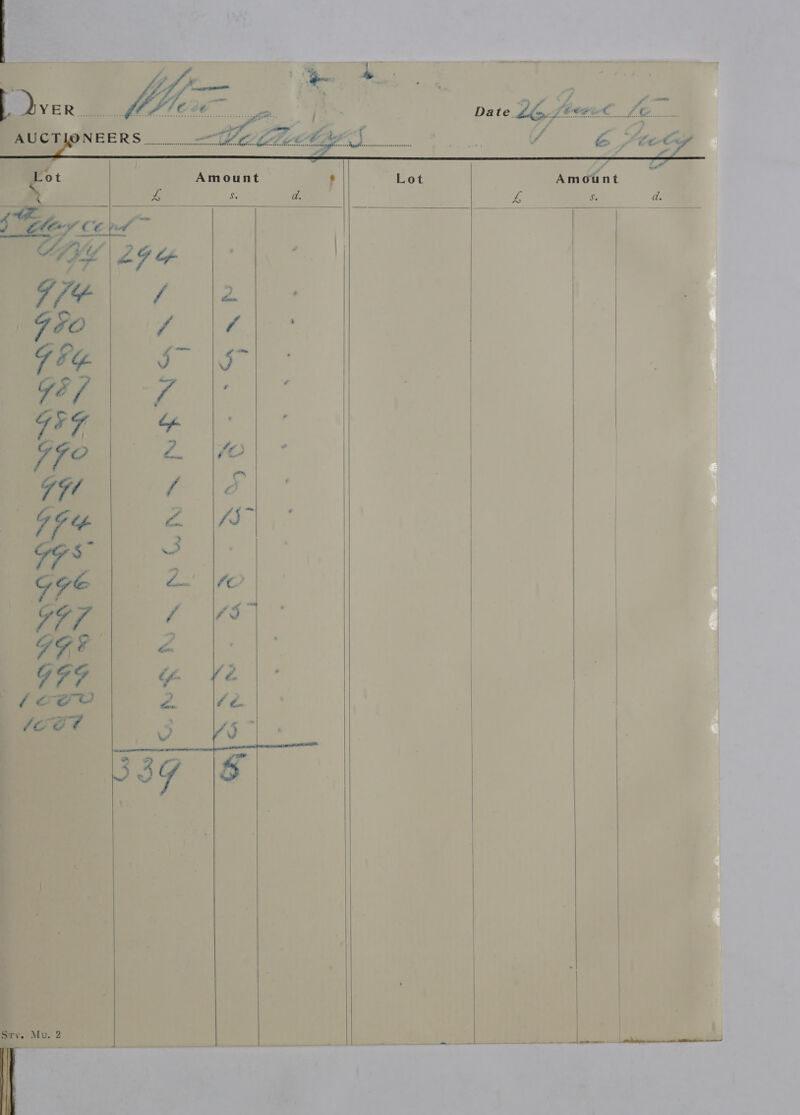 YER
Date 26 June to
AUCTIONEERS Sothebys 6 July
Lot Amount Lot Amount
£ s. d. £ s. d.
5th day cont
294 . .
974 1 2 .
980 1 1 .
984 5 5 .
987 7 . .
989 4 . .
990 2 10 .
991 1 8 .
994 2 15 .
995 3 .
996 2 10
997 1 15 .
998 2 . .
999 4 12 .
1000 2 12 .
1001 3 15 .
339 5
Sty. Mu. 2